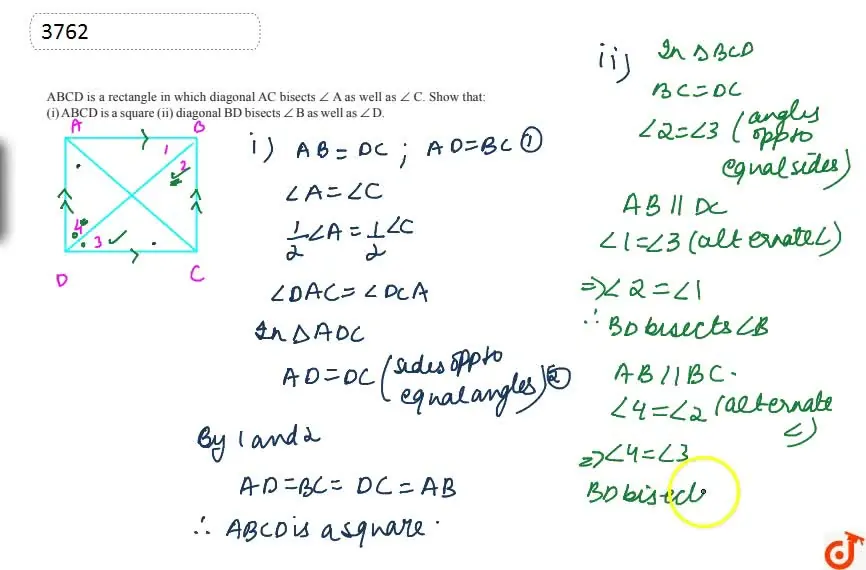 3762
ABCD is a rectangle in which diagonal AC bisects ∠ A as well as ∠ C. Show that:
(i) ABCD is a square (ii) diagonal BD bisects ∠ B as well as ∠ D.
A B
1
2
4
3
D C
i) AB = DC ; AD = BC ①
∠A = ∠C
1/2 ∠A = 1/2 ∠C
∠DAC = ∠DCA
In △ADC
AD = DC (sides opp to
equal angles) ②
By 1 and 2
AD = BC = DC = AB
∴ ABCD is a square.
ii) In △BCD
BC = DC
∠2 = ∠3 (angles
opp to
equal sides)
AB || DC
∠1 = ∠3 (alternate ∠)
=> ∠2 = ∠1
∴ BD bisects ∠B
AB || BC.
∠4 = ∠2 (alternate
∠)
=> ∠4 = ∠3
BD bisect